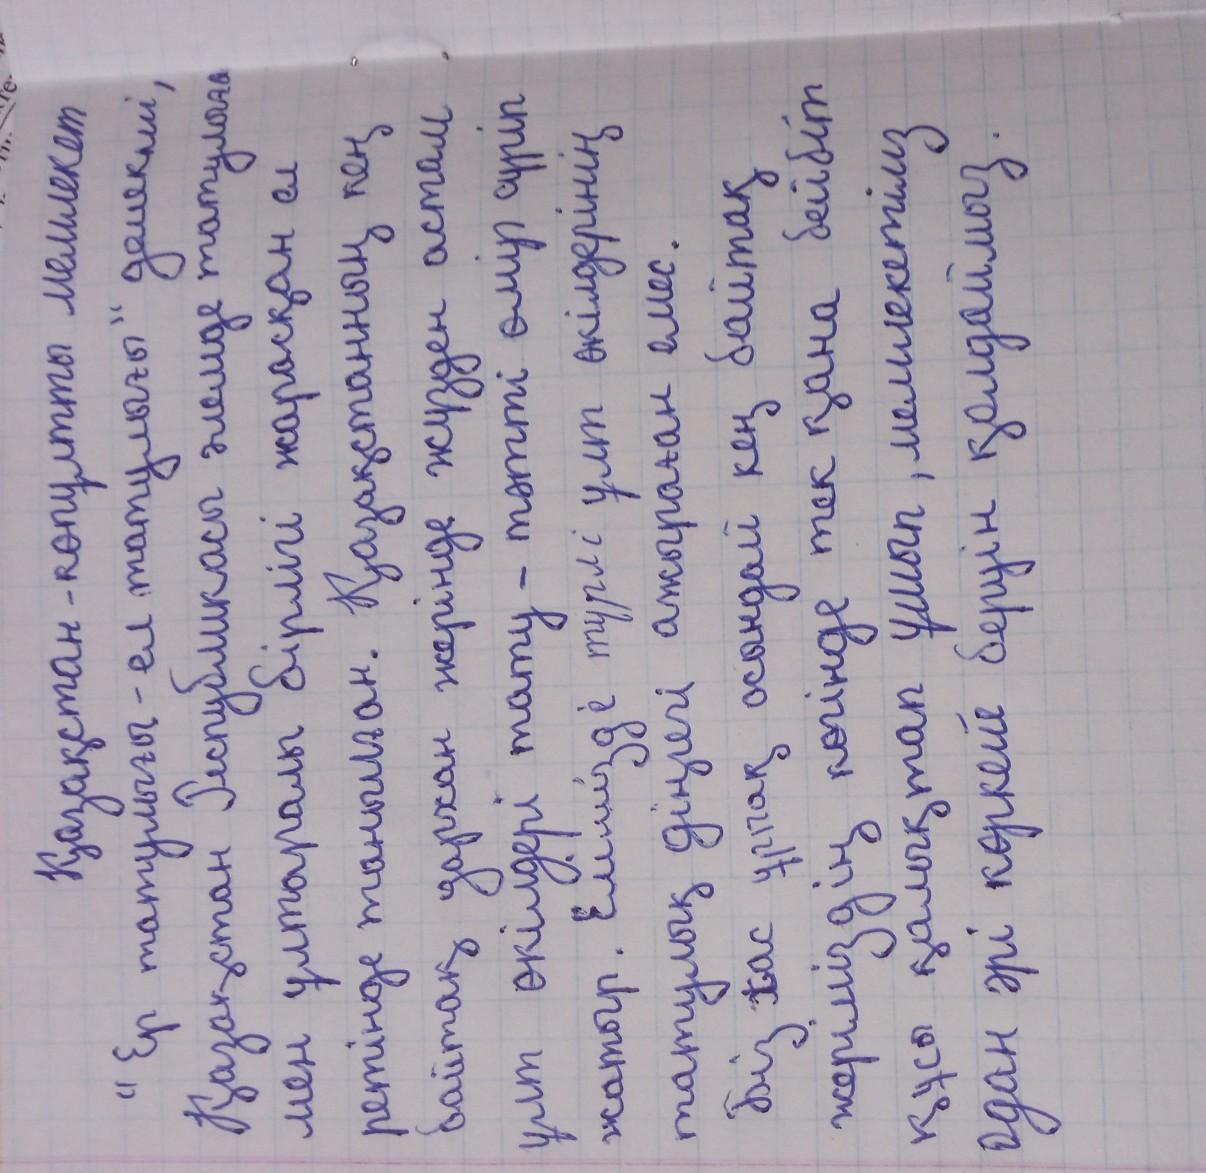 Қазақстан - көпұлтты мемлекет
"Ер татулығы - ел татулығы" демекші,
Қазақстан Республикасы әлемде татулығы
мен ұлтаралы бірлігі жарасқан ел
ретінде танылған. Қазақстанның кең
байтақ дархан жерінде жүзден астам
ұлт өкілдері тату - тәтті өмір сүріп
жатыр. Елімізде түрлі ұлт өкілдерінің
татулық діңгегі ажыраған емес.
Біз жас ұрпақ осындай кең байтақ
жеріміздің көгінде тек қана бейбіт
құсы қалықтап ұшып, мемлекетіміз
одан әрі көркей беруін қолдаймыз.